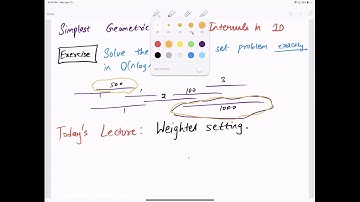 Simplest Geometric Intervals in 1D
Exercise Solve the set problem exactly
in O(nlog
500 3
1 1 2 100
1 1000
Today's Lecture: Weighted setting.